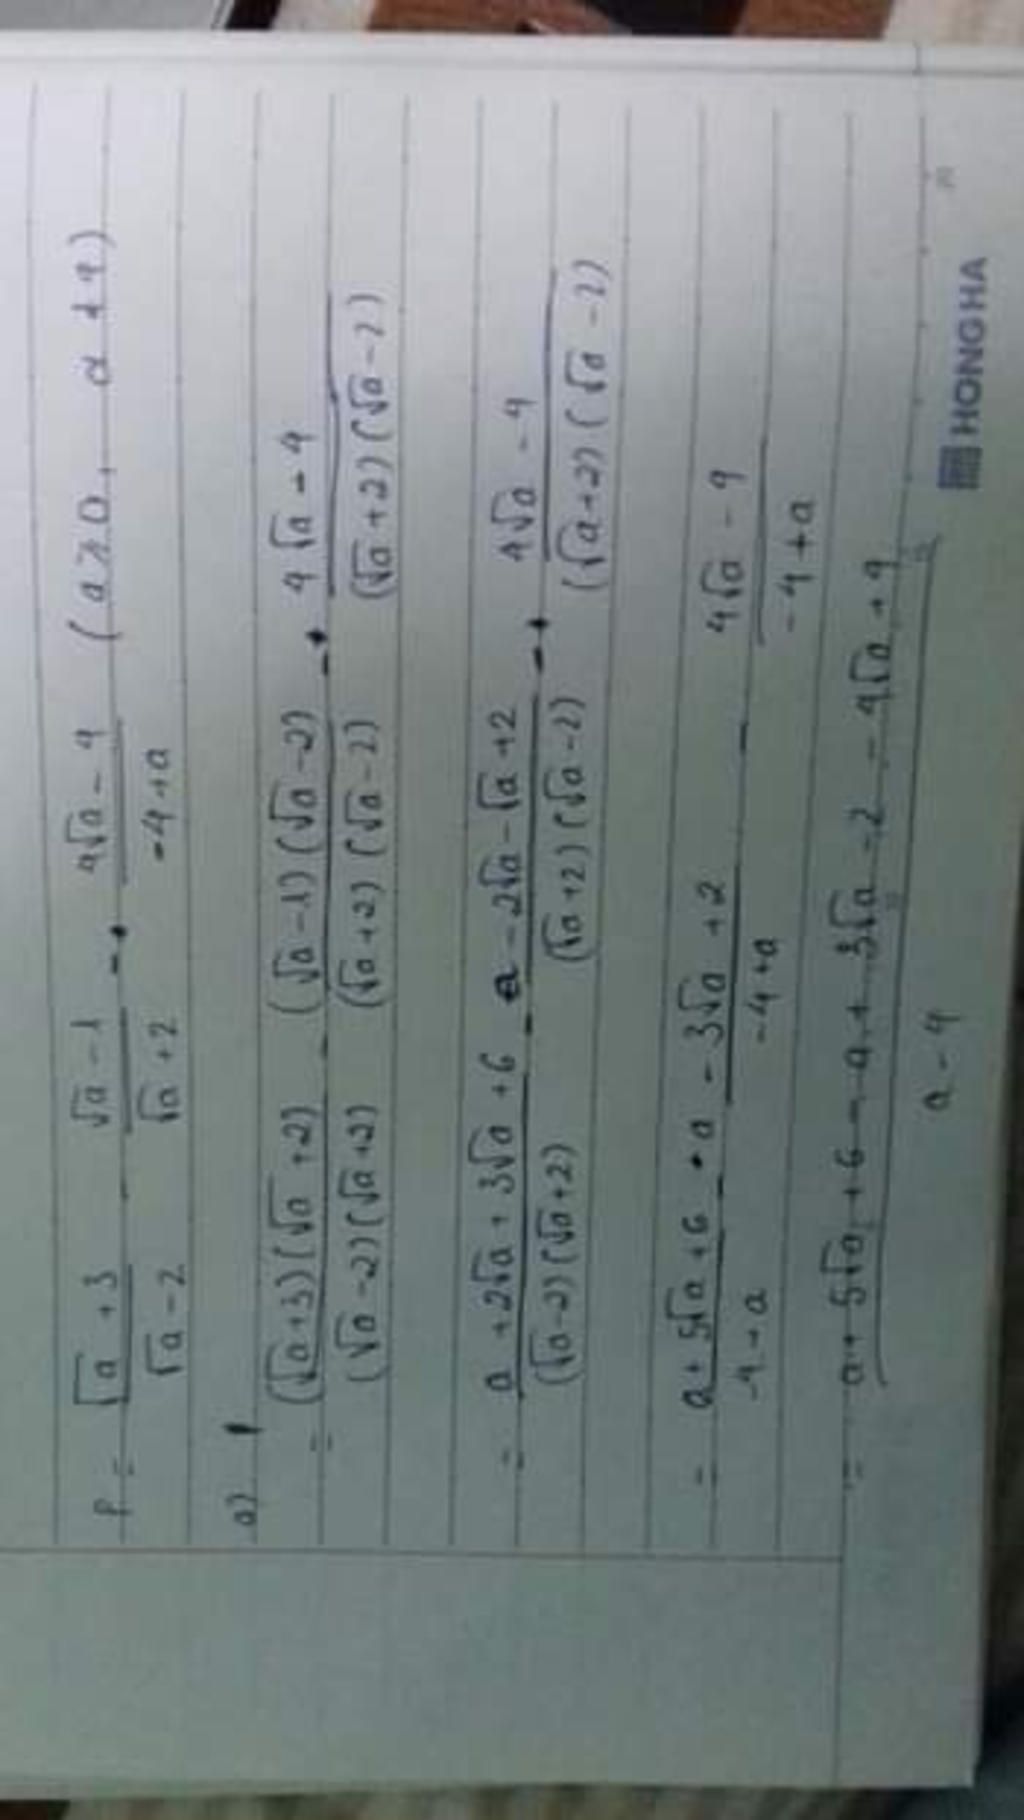 P = √a + 3 / √a - 2 - √a - 1 / √a + 2 - 4√a - 4 / -4 + a (a ≥ 0, a ≠ 4)
a)
= (√a + 3)(√a + 2) / (√a - 2)(√a + 2) - (√a - 1)(√a - 2) / (√a + 2)(√a - 2) - 4√a - 4 / (√a + 2)(√a - 2)
= a + 2√a + 3√a + 6 / (√a - 2)(√a + 2) - a - 2√a - √a + 2 / (√a + 2)(√a - 2) - 4√a - 4 / (√a + 2)(√a - 2)
= a + 5√a + 6 / -4 + a - a - 3√a + 2 / -4 + a - 4√a - 4 / -4 + a
= a + 5√a + 6 - a + 3√a - 2 - 4√a + 4 / a - 4
HONG HA